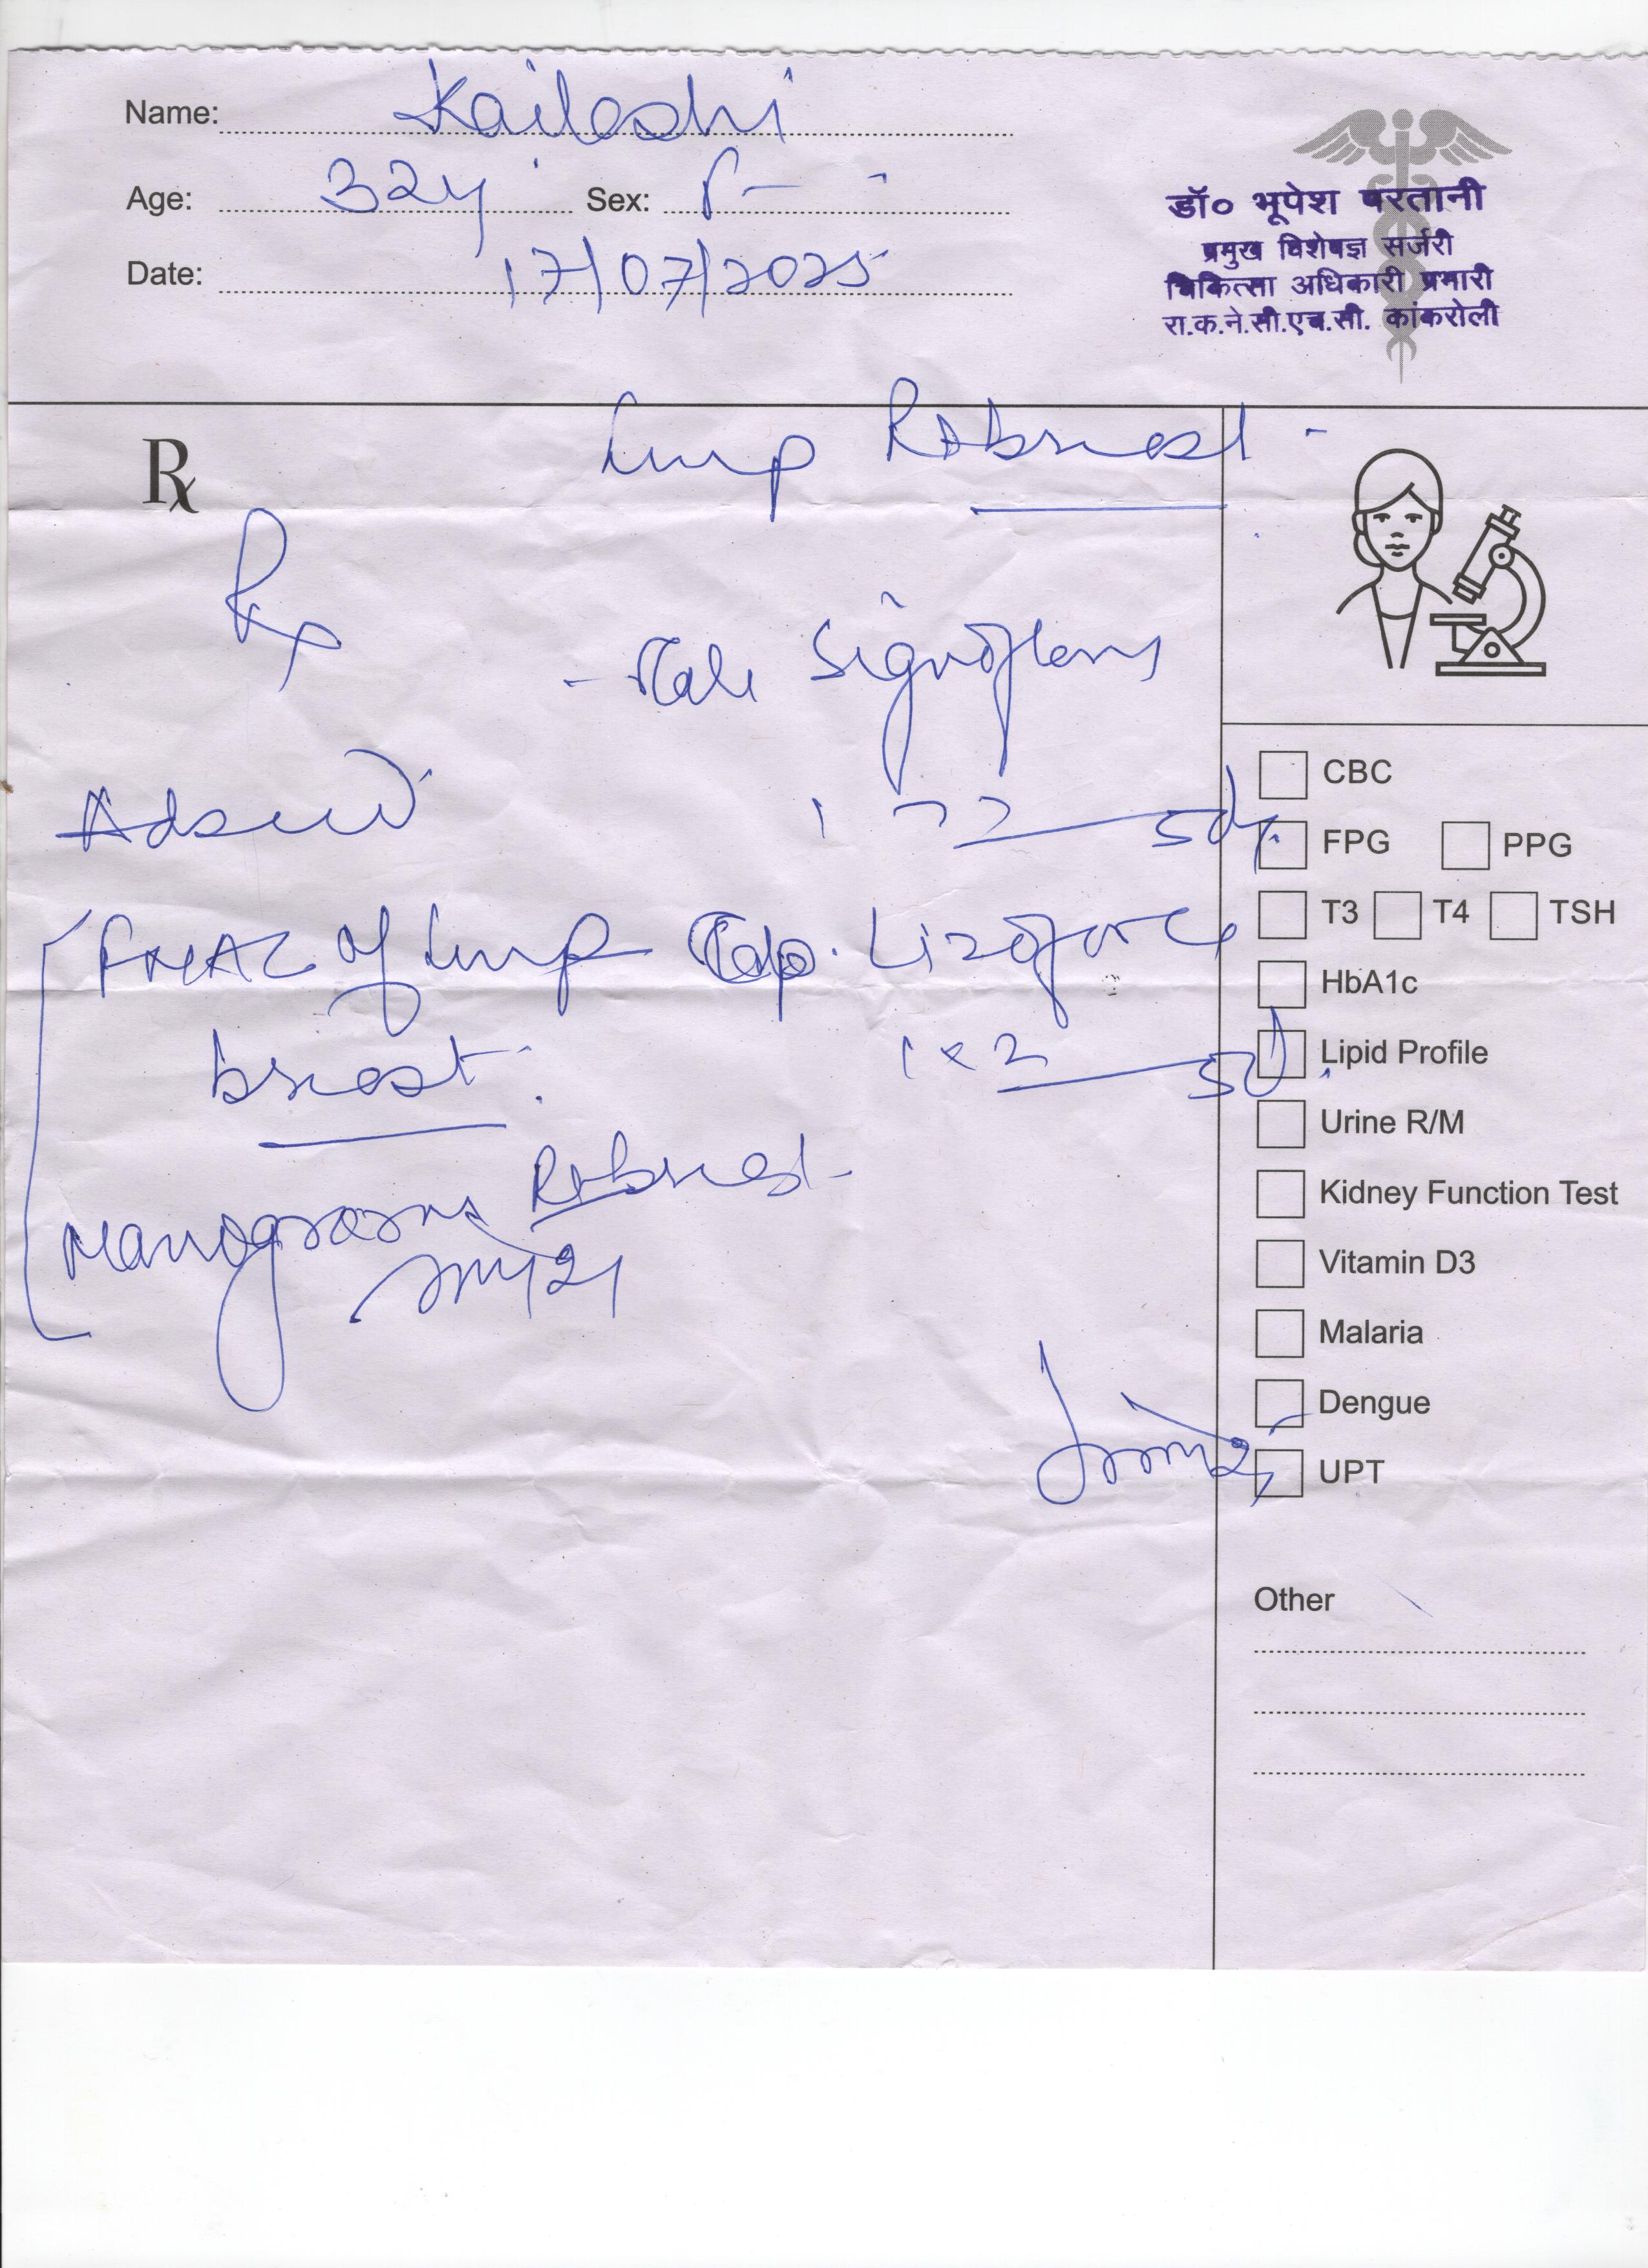 Name: Kaileshi
Age: 32y Sex: F
Date: 17/07/2025
डॉ० भूपेश परतानी
प्रमुख विशेषज्ञ सर्जरी
चिकित्सा अधिकारी प्रभारी
रा.क.ने.सी.एच.सी. कांकरोली
Lump Rt breast
Rx
Rx
- Tab
Advised
1 x 2 5d
FNAC of lump
breast
Cap.
1 x 2 5d
Mamogram Rt breast
CBC
FPG PPG
T3 T4 TSH
HbA1c
Lipid Profile
Urine R/M
Kidney Function Test
Vitamin D3
Malaria
Dengue
UPT
Other